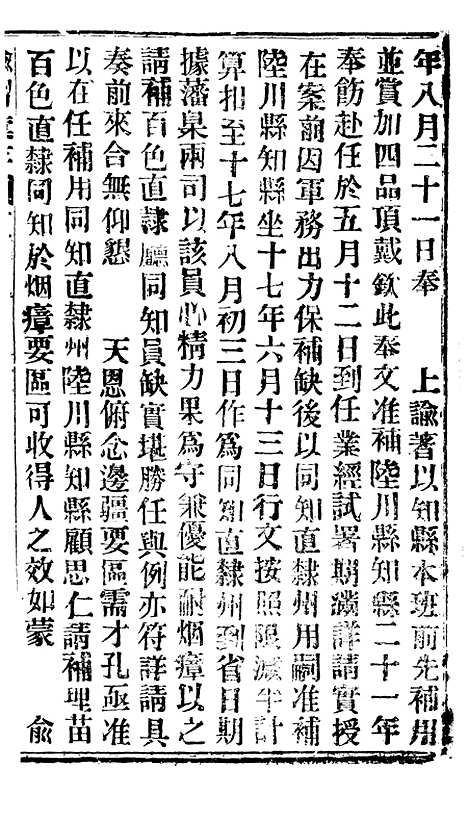 年八月二十一日奉　上諭著以知縣本班前先補用
並賞加四品頂戴欽此奉文准補陸川縣知縣二十一年
奉飭赴任於五月十二日到任業經試署期滿詳請實授
在案前因軍務出力保補缺後以同知直隸州用嗣准補
陸川縣知縣坐十七年六月十三日行文按照限減半計
算扣至十七年八月初三日作爲同知直隸州到省日期
據藩臬兩司以該員心精力果爲守兼優能耐烟瘴以之
請補百色直隸廳同知員缺實堪勝任與例亦符詳請具
奏前來合無仰懇　天恩俯念邊疆要區需才孔亟准
以在任補用同知直隸州陸川縣知縣顧思仁請補理苗
百色直隸同知於烟瘴要區可收得人之效如蒙　俞